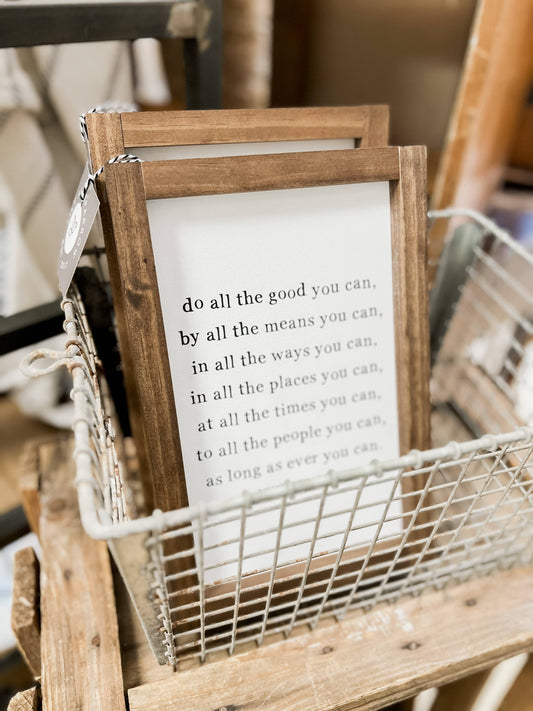 do all the good you can,
by all the means you can,
in all the ways you can,
in all the places you can,
at all the times you can,
to all the people you can,
as long as ever you can.